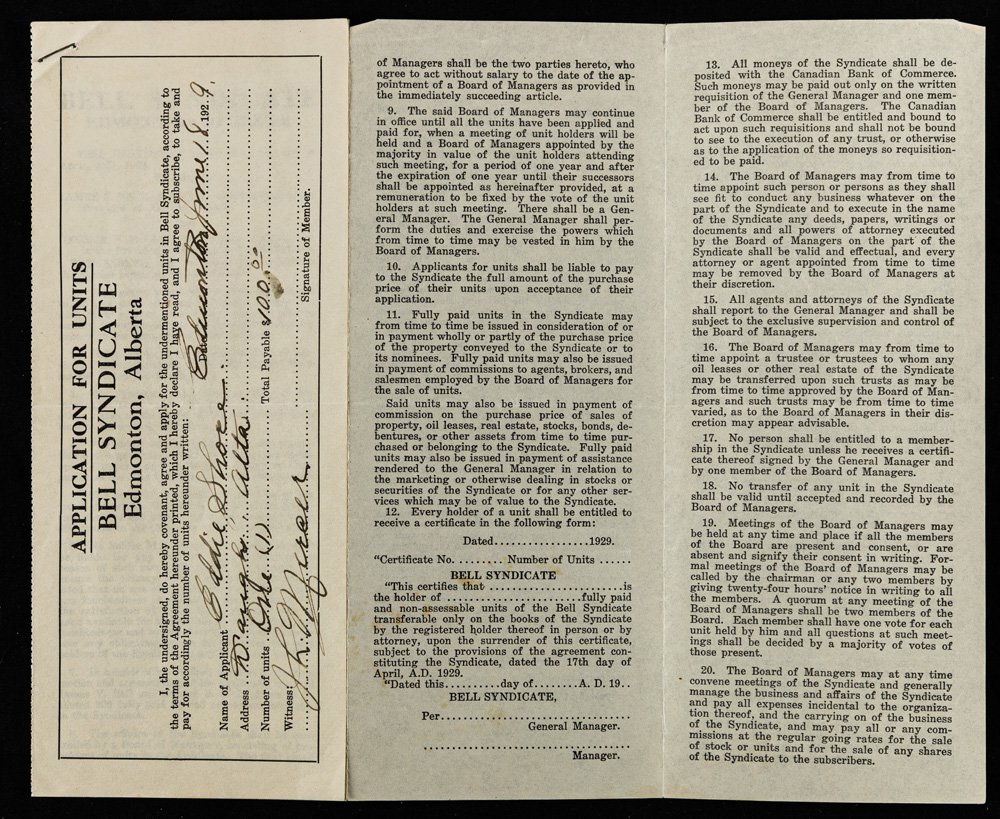 APPLICATION FOR UNITS
BELL SYNDICATE
Edmonton, Alberta
Edmonton June 18 1929.
I, the undersigned, do hereby covenant, agree and apply for the undermentioned units in Bell Syndicate, according to
the terms of the Agreement hereunder printed, which I hereby declare I have read, and I agree to subscribe, to take and
pay for accordingly the number of units hereunder written:
Name of Applicant Eddie Shore
Address Alta
Number of units One (1) Total Payable $100.00
Witness:
Signature of Member.
of Managers shall be the two parties hereto, who
agree to act without salary to the date of the ap-
pointment of a Board of Managers as provided in
the immediately succeeding article.
9. The said Board of Managers may continue
in office until all the units have been applied and
paid for, when a meeting of unit holders will be
held and a Board of Managers appointed by the
majority in value of the unit holders attending
such meeting, for a period of one year and after
the expiration of one year until their successors
shall be appointed as hereinafter provided, at a
remuneration to be fixed by the vote of the unit
holders at such meeting. There shall be a Gen-
eral Manager. The General Manager shall per-
form the duties and exercise the powers which
from time to time may be vested in him by the
Board of Managers.
10. Applicants for units shall be liable to pay
to the Syndicate the full amount of the purchase
price of their units upon acceptance of their
application.
11. Fully paid units in the Syndicate may
from time to time be issued in consideration of or
in payment wholly or partly of the purchase price
of the property conveyed to the Syndicate or to
its nominees. Fully paid units may also be issued
in payment of commissions to agents, brokers, and
salesmen employed by the Board of Managers for
the sale of units.
Said units may also be issued in payment of
commission on the purchase price of sales of
property, oil leases, real estate, stocks, bonds, de-
bentures, or other assets from time to time pur-
chased or belonging to the Syndicate. Fully paid
units may also be issued in payment of assistance
rendered to the General Manager in relation to
the marketing or otherwise dealing in stocks or
securities of the Syndicate or for any other ser-
vices which may be of value to the Syndicate.
12. Every holder of a unit shall be entitled to
receive a certificate in the following form:
Dated.................1929.
"Certificate No. ......... Number of Units ......
BELL SYNDICATE
"This certifies that .........................is
the holder of .........................fully paid
and non-assessable units of the Bell Syndicate
transferable only on the books of the Syndicate
by the registered holder thereof in person or by
attorney, upon the surrender of this certificate,
subject to the provisions of the agreement con-
stituting the Syndicate, dated the 17th day of
April, A.D. 1929.
"Dated this.........day of........A. D. 19..
BELL SYNDICATE,
Per...................................
General Manager.
......................................
Manager.
13. All moneys of the Syndicate shall be de-
posited with the Canadian Bank of Commerce.
Such moneys may be paid out only on the written
requisition of the General Manager and one mem-
ber of the Board of Managers. The Canadian
Bank of Commerce shall be entitled and bound to
act upon such requisitions and shall not be bound
to see to the execution of any trust, or otherwise
as to the application of the moneys so requisition-
ed to be paid.
14. The Board of Managers may from time to
time appoint such person or persons as they shall
see fit to conduct any business whatever on the
part of the Syndicate and to execute in the name
of the Syndicate any deeds, papers, writings or
documents and all powers of attorney executed
by the Board of Managers on the part of the
Syndicate shall be valid and effectual, and every
attorney or agent appointed from time to time
may be removed by the Board of Managers at
their discretion.
15. All agents and attorneys of the Syndicate
shall report to the General Manager and shall be
subject to the exclusive supervision and control of
the Board of Managers.
16. The Board of Managers may from time to
time appoint a trustee or trustees to whom any
oil leases or other real estate of the Syndicate
may be transferred upon such trusts as may be
from time to time approved by the Board of Man-
agers and such trusts may be from time to time
varied, as to the Board of Managers in their dis-
cretion may appear advisable.
17. No person shall be entitled to a member-
ship in the Syndicate unless he receives a certifi-
cate thereof signed by the General Manager and
by one member of the Board of Managers.
18. No transfer of any unit in the Syndicate
shall be valid until accepted and recorded by the
Board of Managers.
19. Meetings of the Board of Managers may
be held at any time and place if all the members
of the Board are present and consent, or are
absent and signify their consent in writing. For-
mal meetings of the Board of Managers may be
called by the chairman or any two members by
giving twenty-four hours' notice in writing to all
the members. A quorum at any meeting of the
Board of Managers shall be two members of the
Board. Each member shall have one vote for each
unit held by him and all questions at such meet-
ings shall be decided by a majority of votes of
those present.
20. The Board of Managers may at any time
convene meetings of the Syndicate and generally
manage the business and affairs of the Syndicate
and pay all expenses incidental to the organiza-
tion thereof, and the carrying on of the business
of the Syndicate, and may pay all or any com-
missions at the regular going rates for the sale
of stock or units and for the sale of any shares
of the Syndicate to the subscribers.